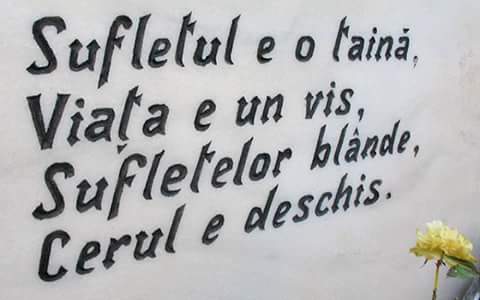 Sufletul e o taină,
Viața e un vis,
Sufletelor blânde,
Cerul e deschis.